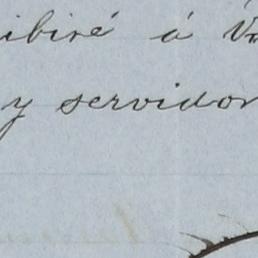 ibiré á V
y servidor